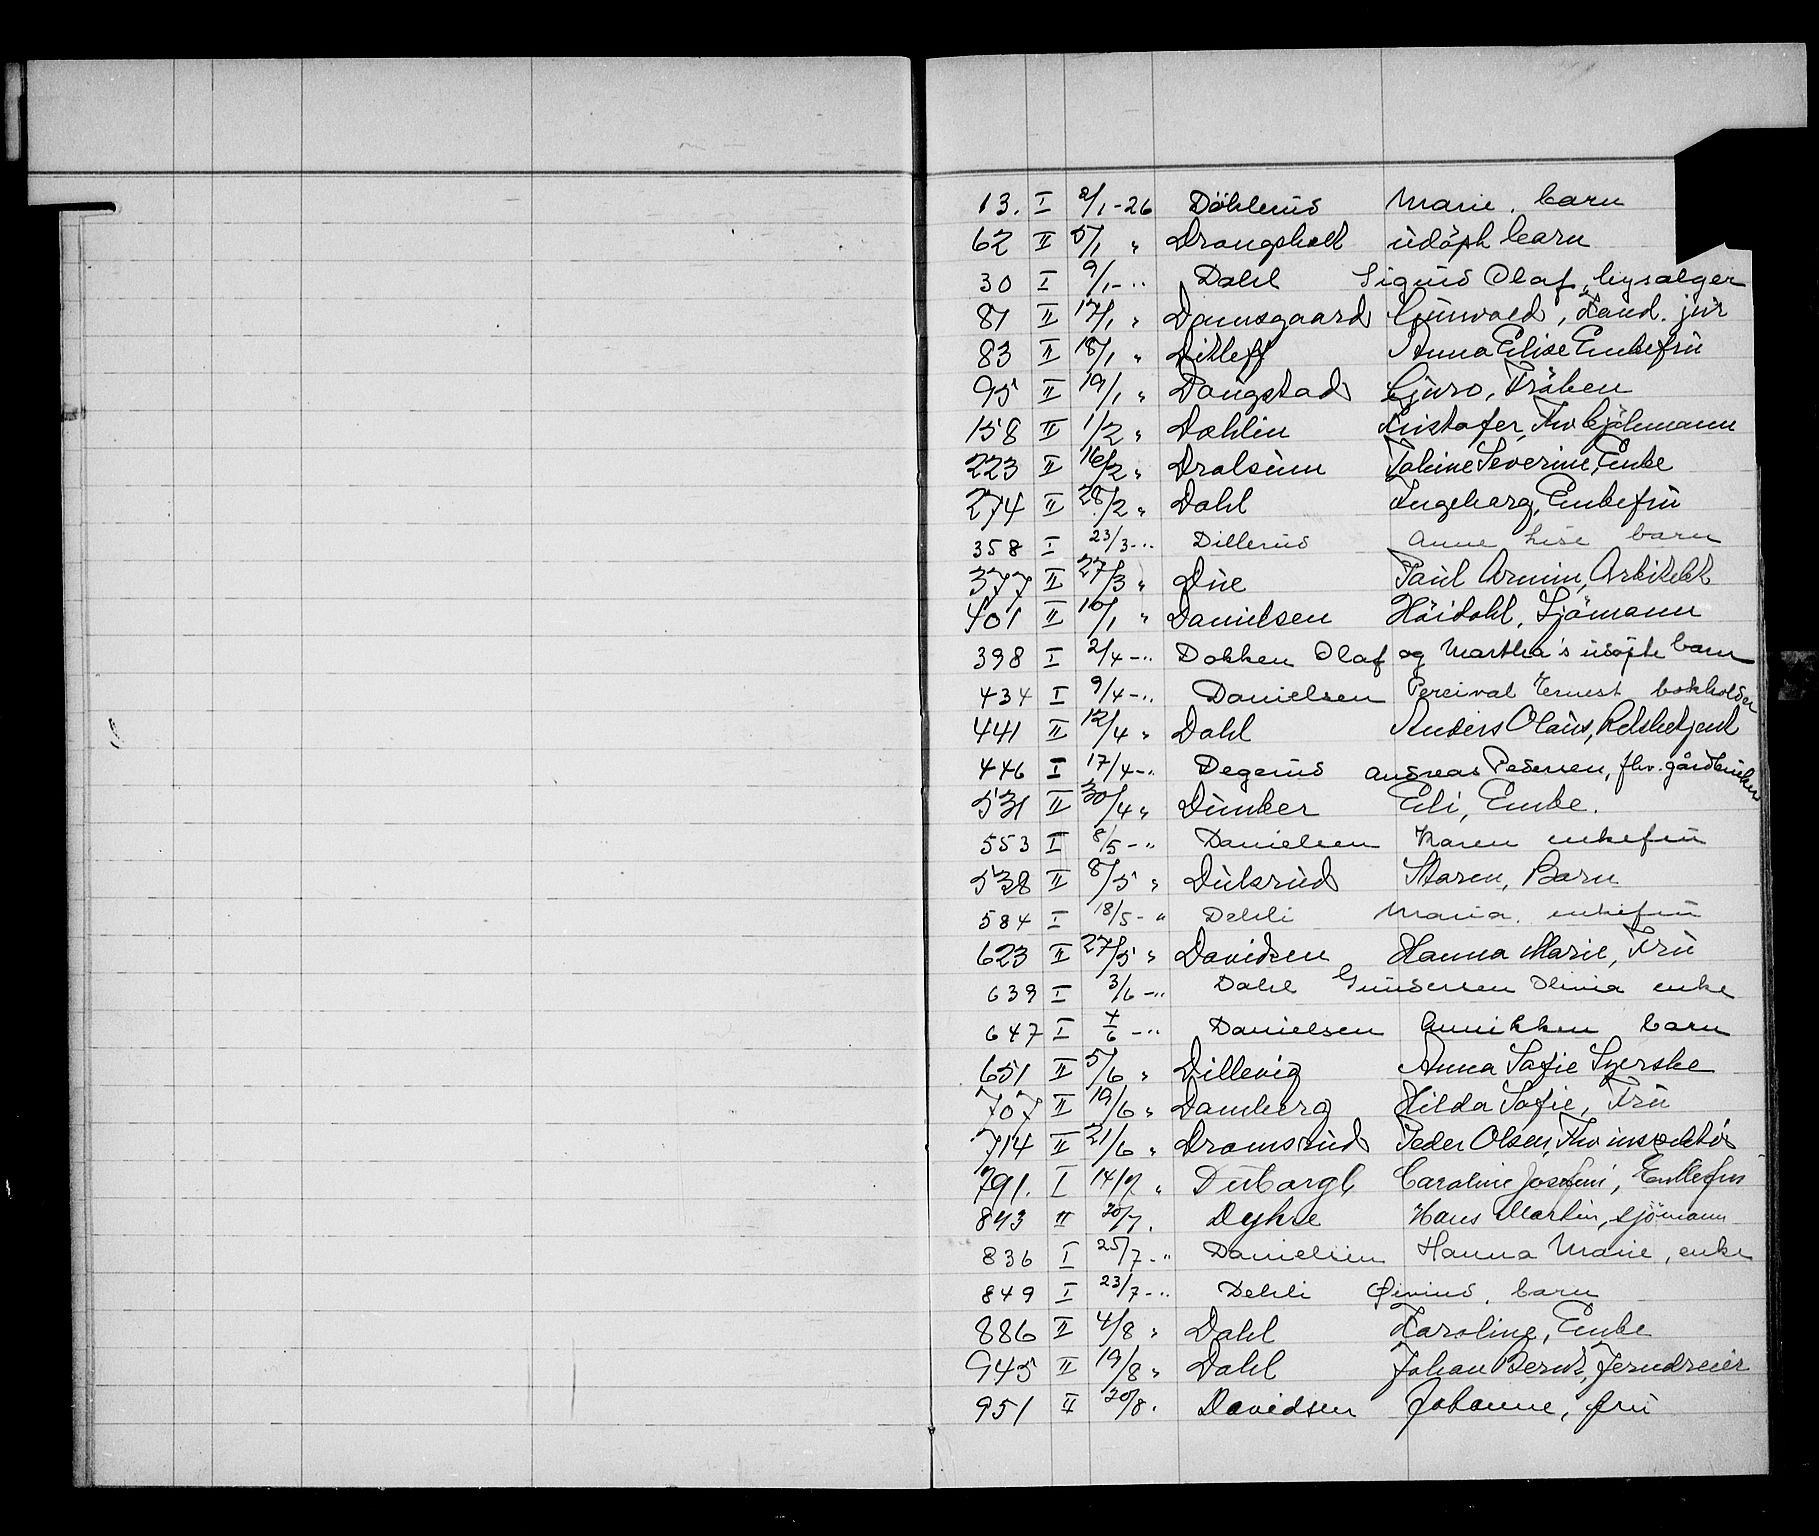 13. I 2/1-26 Döhlerud Marie, barn
62 II 5/1 " Drangsholt udöpt barn
30 I 9/1-" Dahl Sigurd Olaf, lysselger
81 II 17/1 " Damsgaard Gunvald, Kand. jur
83 II 18/1 " Ditleff Anna Elise Enkefru
95 II 19/1 " Daugstad Guro, Fröken
158 II 1/2 " Dahlin Kristofer, Fhv
223 II 16/2 " Severine, Enke
274 II 28/2 " Dahl Ingeborg, Enkefru
358 I 23/3-" Dillerud Anne Lise barn
377 II 27/3 " Due Paul Armin, Arkitekt
401 II 10/1 " Danielsen Höidahl, Sjömann
398 I 2/4-" Dokken Olaf og Martha's udöpte barn
434 I 9/4-" Danielsen Percival Ernest bokholder
441 II 12/4 " Dahl Anders Olaus, Retsbetjent
446 I 17/4-" Degerud Andreas Pedersen, fhv. gårdbruker
531 II 30/4 " Dunker Eli, Enke.
553 I 8/5-" Danielsen Karen enkefru
538 II 8/5 " Dulsrud Maren, Barn
584 I 18/5-" Dehli Maria, enkefru
623 II 27/5 " Davidsen Hanna Marie, Fru
639 I 3/6-" Dahl Gundersen Olivia enke
647 I 4/6-" Danielsen Annikken barn
651 II 5/6 " Dillevig Anna Sofie Syerske
707 II 19/6 " Damberg Hilda Sofie, Fru
714 II 21/6 " Dramsrud Peder Olsen, Fhv inspektör
791. I 14/7 " Duborgh Caroline Josefine, Enkefru
843 II 20/7. Dyhre Hans Martin, sjömann
836 I 25/7-" Danielsen Hanna Marie, enke
849 I 23/7-" Dehli Øivind, barn
886 II 4/8 " Dahl Karoline, Enke
945 II 19/8 " Dahl Johan Bernt, Jerndreier
951 II 20/8. Davidsen Johanne, fru